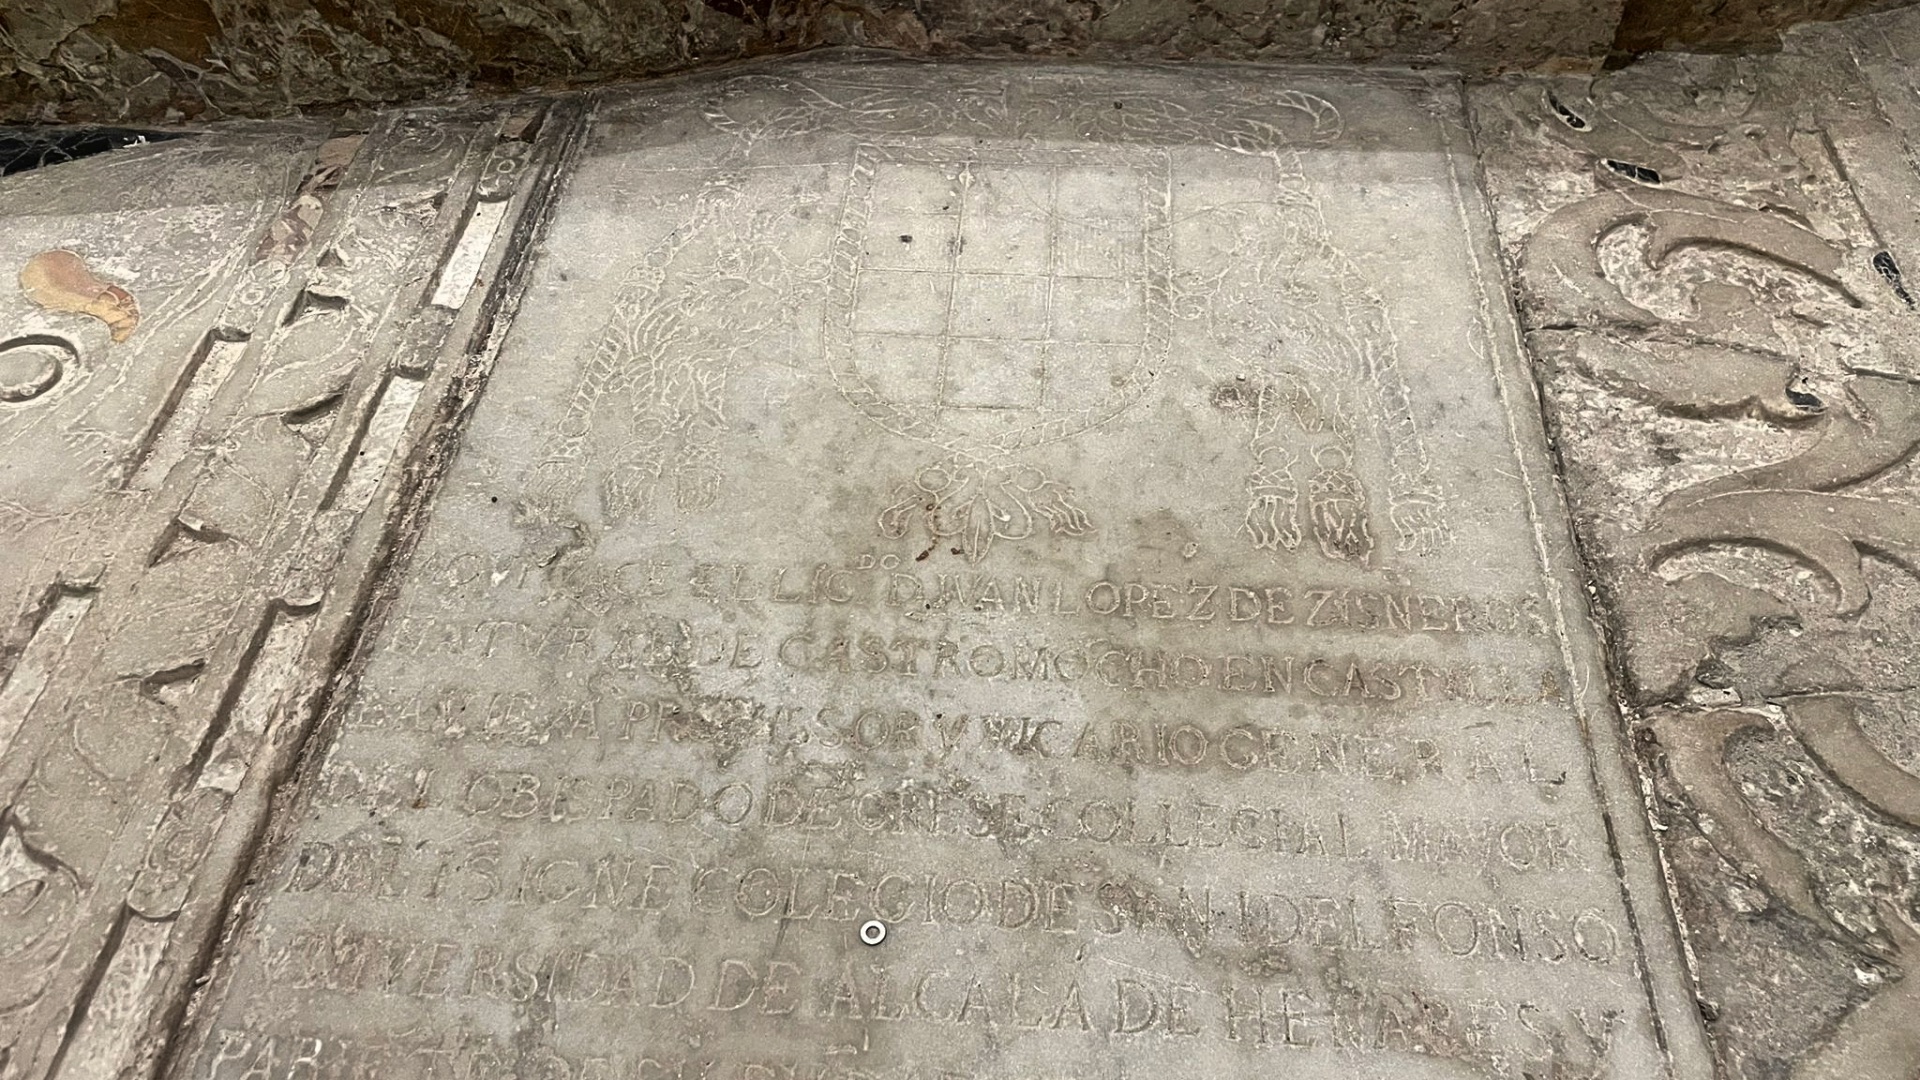 EL LIC.DO D. IVAN LOPEZ DE ZISNEROS
NATVRAL DE CASTROMOCHO EN CASTILLA
PROVISSOR Y VICARIO GENERAL
DEL OBISPADO DE COLLEGIAL MAYOR
DEL YSIGNE COLEGIO DE SAN IDELFONSO
VNIVERSIDAD DE ALCALA DE HENARES Y